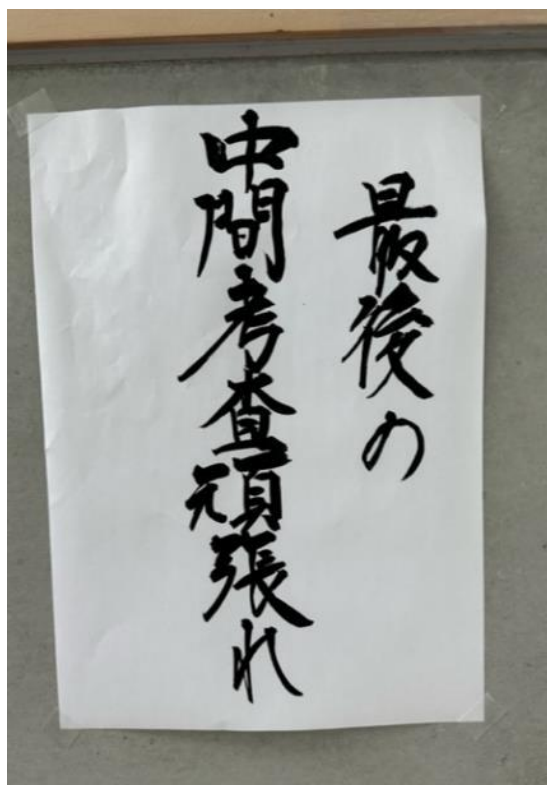 最後の
中間考査頑張れ